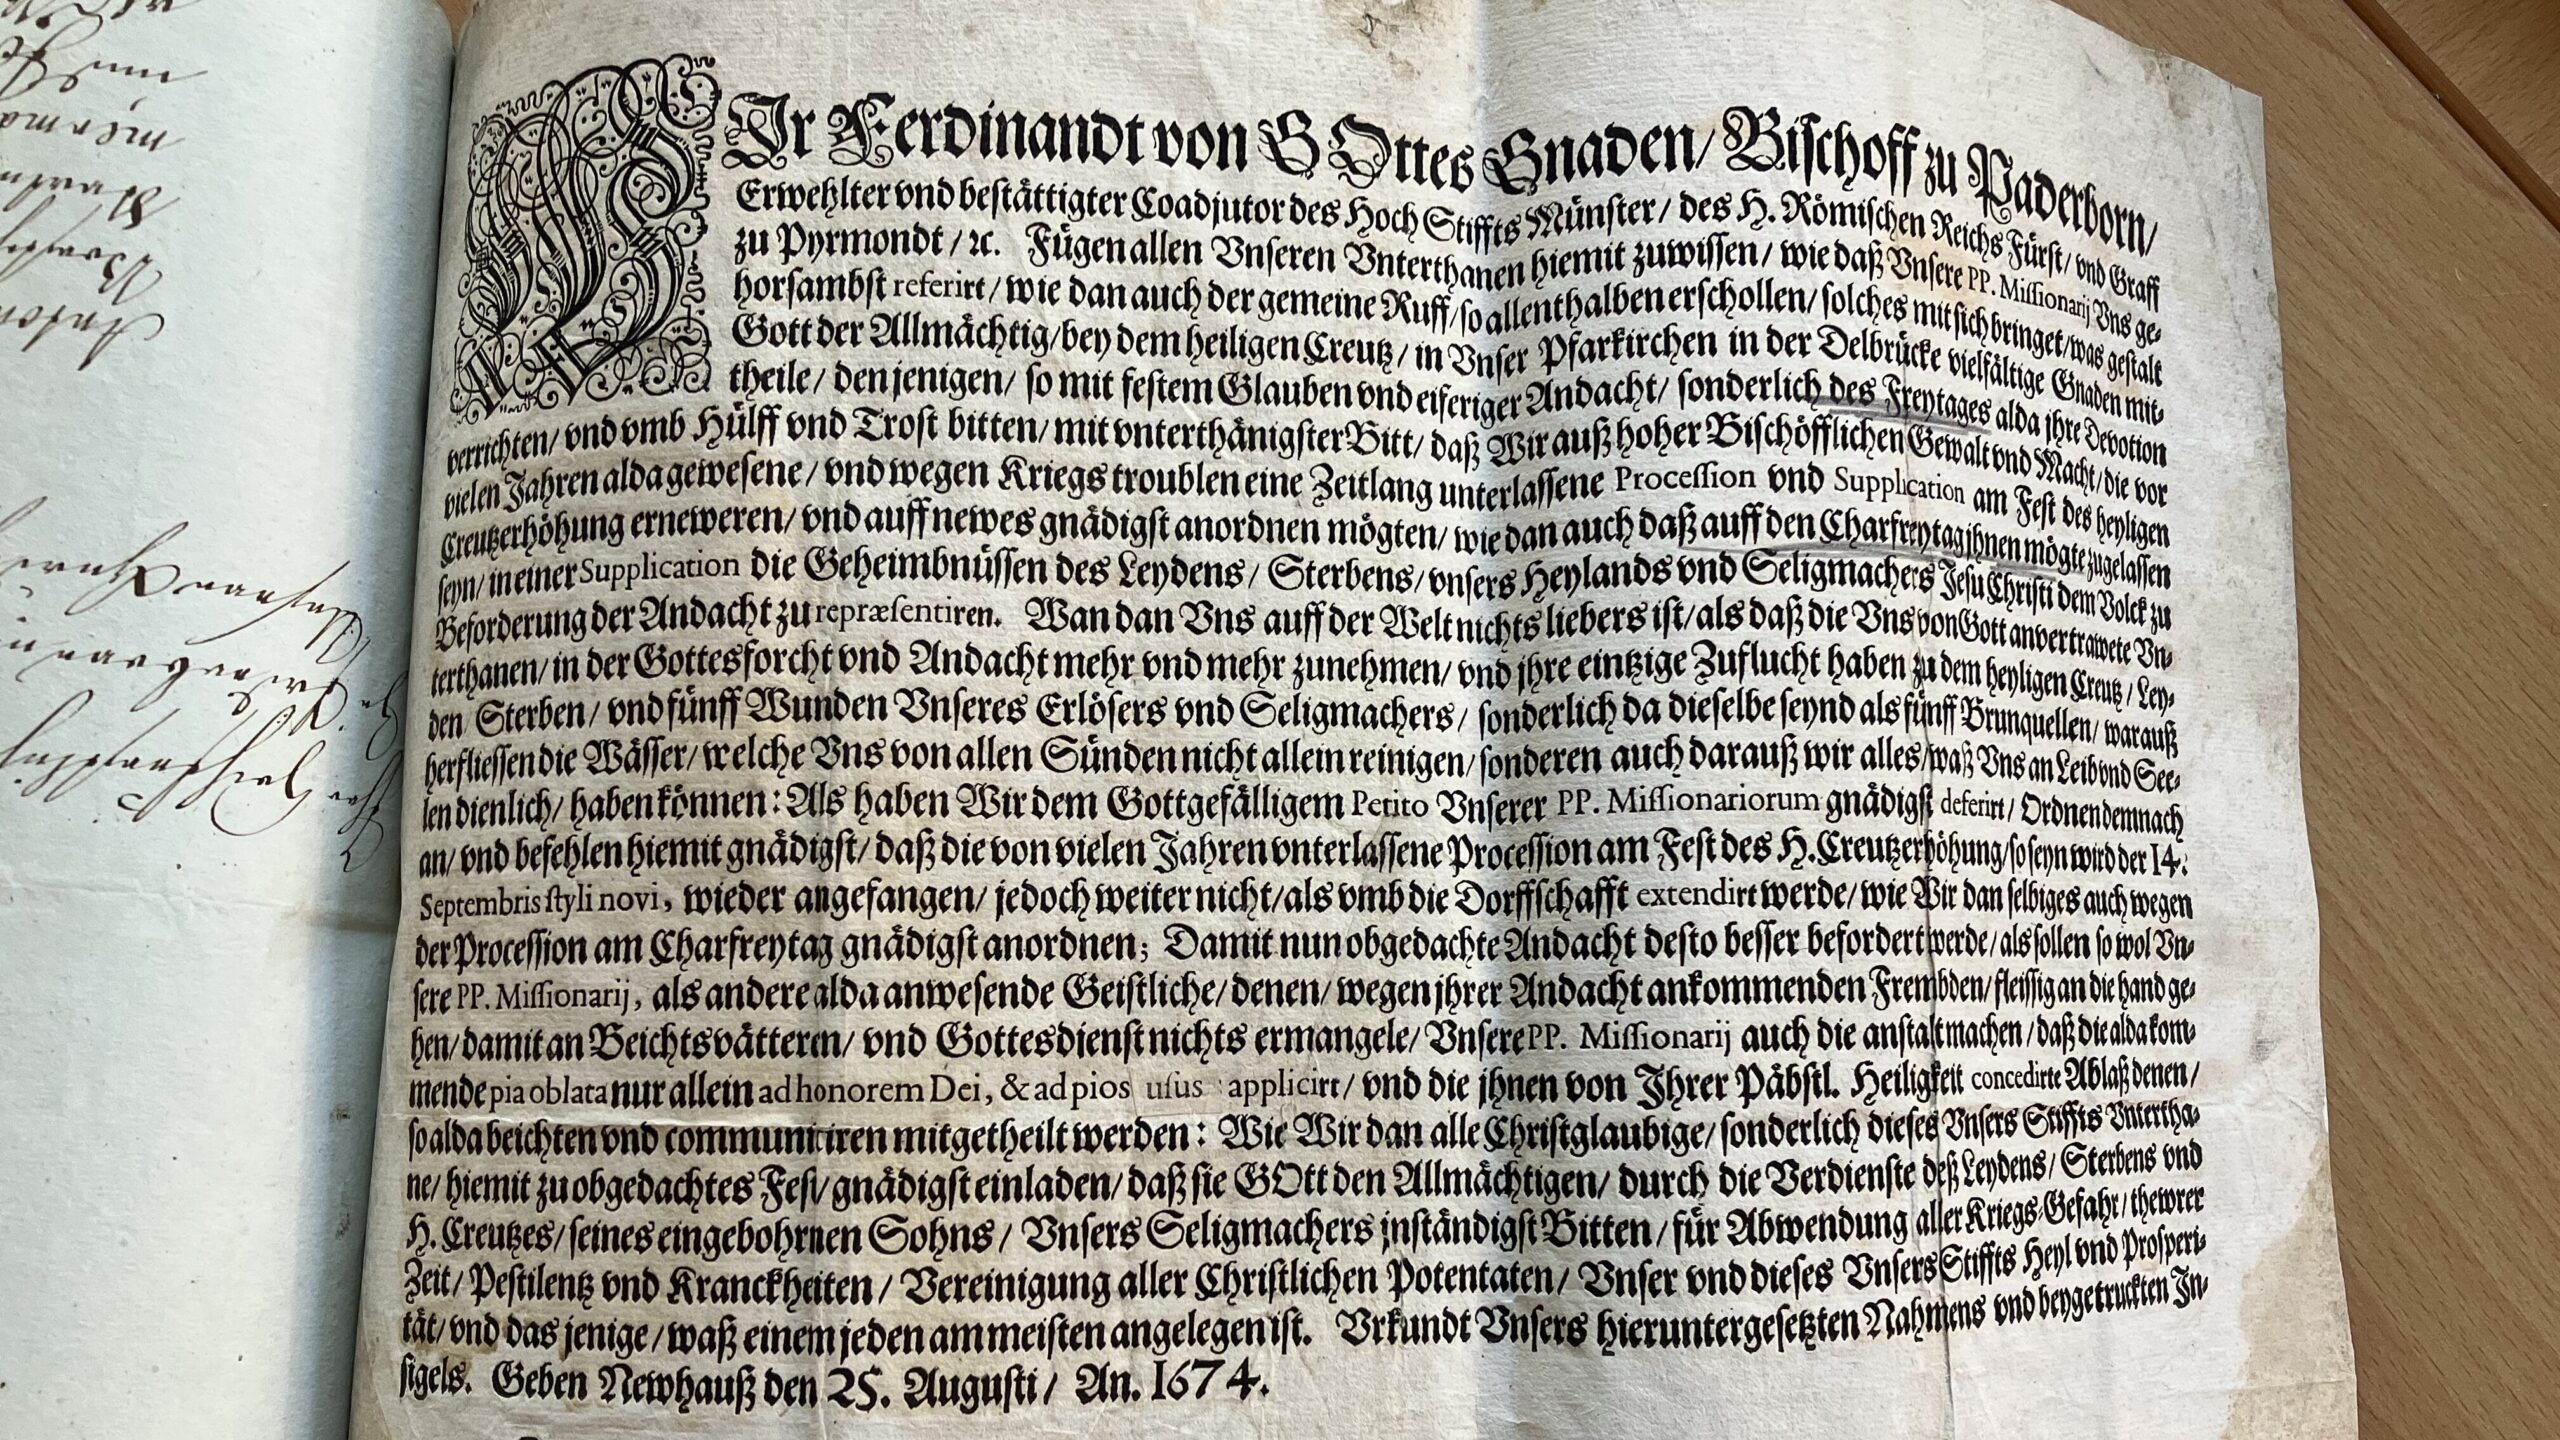 WIr Ferdinandt von GOttes Gnaden/ Bischoff zu Paderborn/
Erwehlter vnd bestättigter Coadjutor des Hoch Stiffts Münster/ des H. Römischen Reichs Fürst/ vnd Graff
zu Pyrmondt/ ꝛc. Fügen allen Vnseren Vnterthanen hiemit zuwissen/ wie daß Vnsere PP. Missionarij Vns ge-
horsambst referirt/ wie dan auch der gemeine Ruff/ so allenthalben erschollen/ solches mit sich bringet/ was gestalt
Gott der Allmächtig/ bey dem heiligen Creutz/ in Vnser Pfarkirchen in der Delbrücke vielfältige Gnaden mit-
theile/ denjenigen/ so mit festem Glauben vnd eiferiger Andacht/ sonderlich des Freytages alda jhre Devotion
verrichten/ vnd vmb Hülff vnd Trost bitten/ mit vnterthänigster Bitt/ daß Wir auß hoher Bischöfflichen Gewalt vnd Macht/ die vor
vielen Jahren alda gewesene/ vnd wegen Kriegs troublen eine Zeitlang unterlassene Procession vnd Supplication am Fest des heyligen
Creutzerhöhung erneweren/ vnd auff newes gnädigst anordnen mögten/ wie dan auch daß auff den Charfreytag jhnen mögte zugelassen
seyn/ in einer Supplication die Geheimbnüssen des Leydens/ Sterbens/ vnsers Heylands vnd Seligmachers Jesu Christi dem Volck zu
Beforderung der Andacht zu repræsentiren. Wan dan Vns auff der Welt nichts liebers ist/ als daß die Vns von Gott anvertrawete Vn-
terthanen/ in der Gottesforcht vnd Andacht mehr vnd mehr zunehmen/ vnd jhre eintzige Zuflucht haben zu dem heyligen Creutz/ Ley-
den Sterben/ vnd fünff Wunden Vnseres Erlösers vnd Seligmachers/ sonderlich da dieselbe seynd als fünff Brunquellen/ warauß
herfliessen die Wässer/ welche Vns von allen Sünden nicht allein reinigen/ sonderen auch darauß wir alles/ waß Vns an Leib vnd See-
len dienlich/ haben können: Als haben Wir dem Gottgefälligem Petito Vnserer PP. Missionariorum gnädigst deferirt/ Ordnen demnach
an/ vnd befehlen hiemit gnädigst/ daß die von vielen Jahren vnterlassene Procession am Fest des H. Creutzerhöhung/ so seyn wird der 14.
Septembris styli novi, wieder angefangen/ jedoch weiter nicht/ als vmb die Dorffschafft extendirt werde/ wie Wir dan selbiges auch wegen
der Procession am Charfreytag gnädigst anordnen; Damit nun obgedachte Andacht desto besser befordert werde/ als sollen so wol Vn-
sere PP. Missionarij, als andere alda anwesende Geistliche/ denen/ wegen jhrer Andacht ankommenden Frembden/ fleissig an die hand ge-
hen/ damit an Beichtsvätteren/ vnd Gottesdienst nichts ermangele/ Vnsere PP. Missionarij auch die anstalt machen/ daß die alda kom-
mende pia oblata nur allein ad honorem Dei, & ad pios usus applicirt/ vnd die jhnen von Jhrer Päbstl. Heiligkeit concedirte Ablaß denen/
so alda beichten vnd communiciren mitgetheilt werden: Wie Wir dan alle Christglaubige/ sonderlich dieses Vnsers Stiffts Vntertha-
ne/ hiemit zu obgedachtes Fest/ gnädigst einladen/ daß sie GOtt den Allmächtigen/ durch die Verdienste deß Leydens/ Sterbens vnd
H. Creutzes/ seines eingebohrnen Sohns/ Vnsers Seligmachers inständigst Bitten/ für Abwendung aller Kriegs-Gefahr/ thewrer
Zeit/ Pestilentz vnd Kranckheiten/ Vereinigung aller Christlichen Potentaten/ Vnser vnd dieses Vnsers Stiffts Heyl vnd Prosperi-
tät/ vnd das jenige/ waß einem jeden am meisten angelegen ist. Vrkundt Vnsers hieruntergesetzten Nahmens vnd beygetruckten In-
sigels. Geben Newhauß den 25. Augusti/ An. 1674.